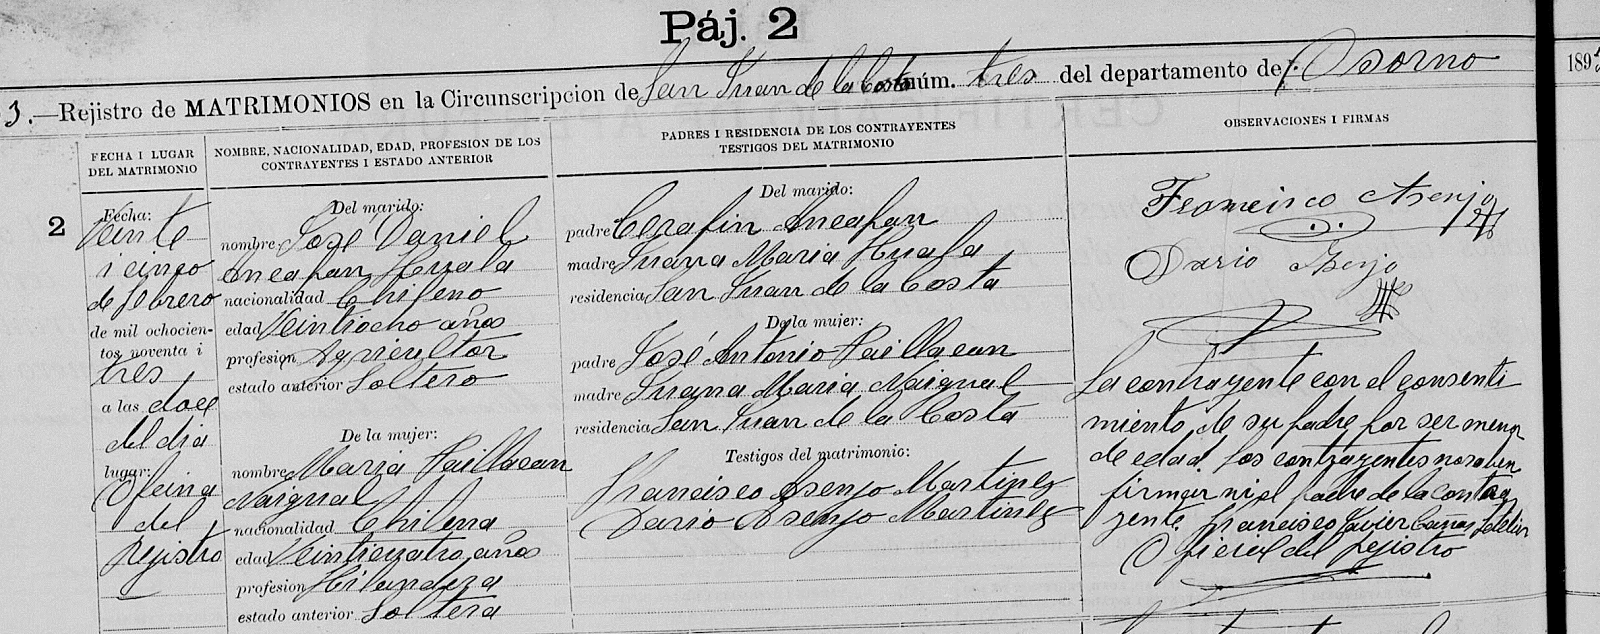 Páj. 2
3.—Rejistro de MATRIMONIOS en la Circunscripcion de San Juan de la Costa núm. tres del departamento de Osorno 189
FECHA I LUGAR
DEL MATRIMONIO
NOMBRE, NACIONALIDAD, EDAD, PROFESION DE LOS
CONTRAYENTES I ESTADO ANTERIOR
PADRES I RESIDENCIA DE LOS CONTRAYENTES
TESTIGOS DEL MATRIMONIO
OBSERVACIONES I FIRMAS
2
Fecha:
Veinte
i cinco
de febrero
de mil ochocien-
tos noventa i
tres
a las doce
del dia
lugar:
Oficina
del
Rejistro
Del marido:
nombre José Daniel
Aneapan Huala
nacionalidad Chileno
edad Veintiocho años
profesion Agricultor
estado anterior Soltero
De la mujer:
nombre Maria Paillacan
Naigual
nacionalidad Chilena
edad Veinticuatro años
profesion Hilandera
estado anterior Soltera
Del marido:
padre Cerafin Aneapan
madre Juana Maria Huala
residencia San Juan de la Costa
De la mujer:
padre José Antonio Paillacan
madre Juana Maria Naigual
residencia San Juan de la Costa
Testigos del matrimonio:
Francisco Asenjo Martinez
Dario Asenjo Martinez
Francisco Asenjo
Dario Asenjo
La contrayente con el consenti
miento de su padre por ser menor
de edad. Los contrayentes no saben
firmar ni el padre de la contra
yente. Francisco Javier Cañas
Oficial del Rejistro